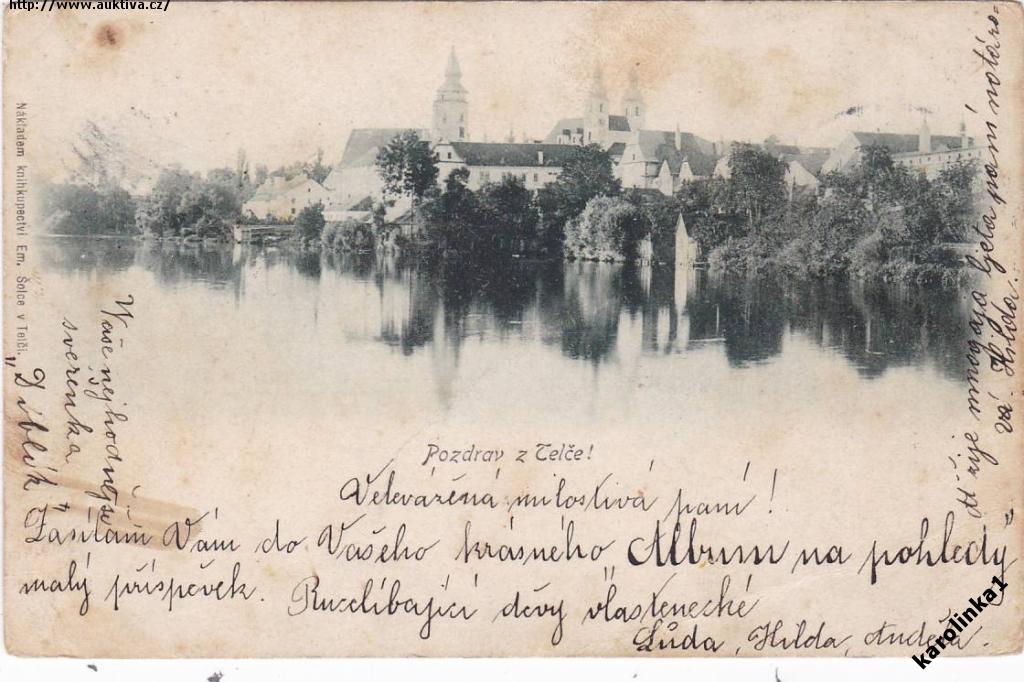 http://www.auktiva.cz/
Nákladem knihkupectví Em. Šolce v Telči.
Pozdrav z Telče!
Velevážená milostivá paní!
Zasílám Vám do Vašeho krásného "Album na pohledy"
malý příspěvek. Rucelíbající děvy vlastenecké
Lůda, Hilda, Anděla.
Vaše nejhodnější
sverenka
"Diblík"
Ať žije mnogaja ljeta paní notáro-
vá. Hilda.
karolinka1